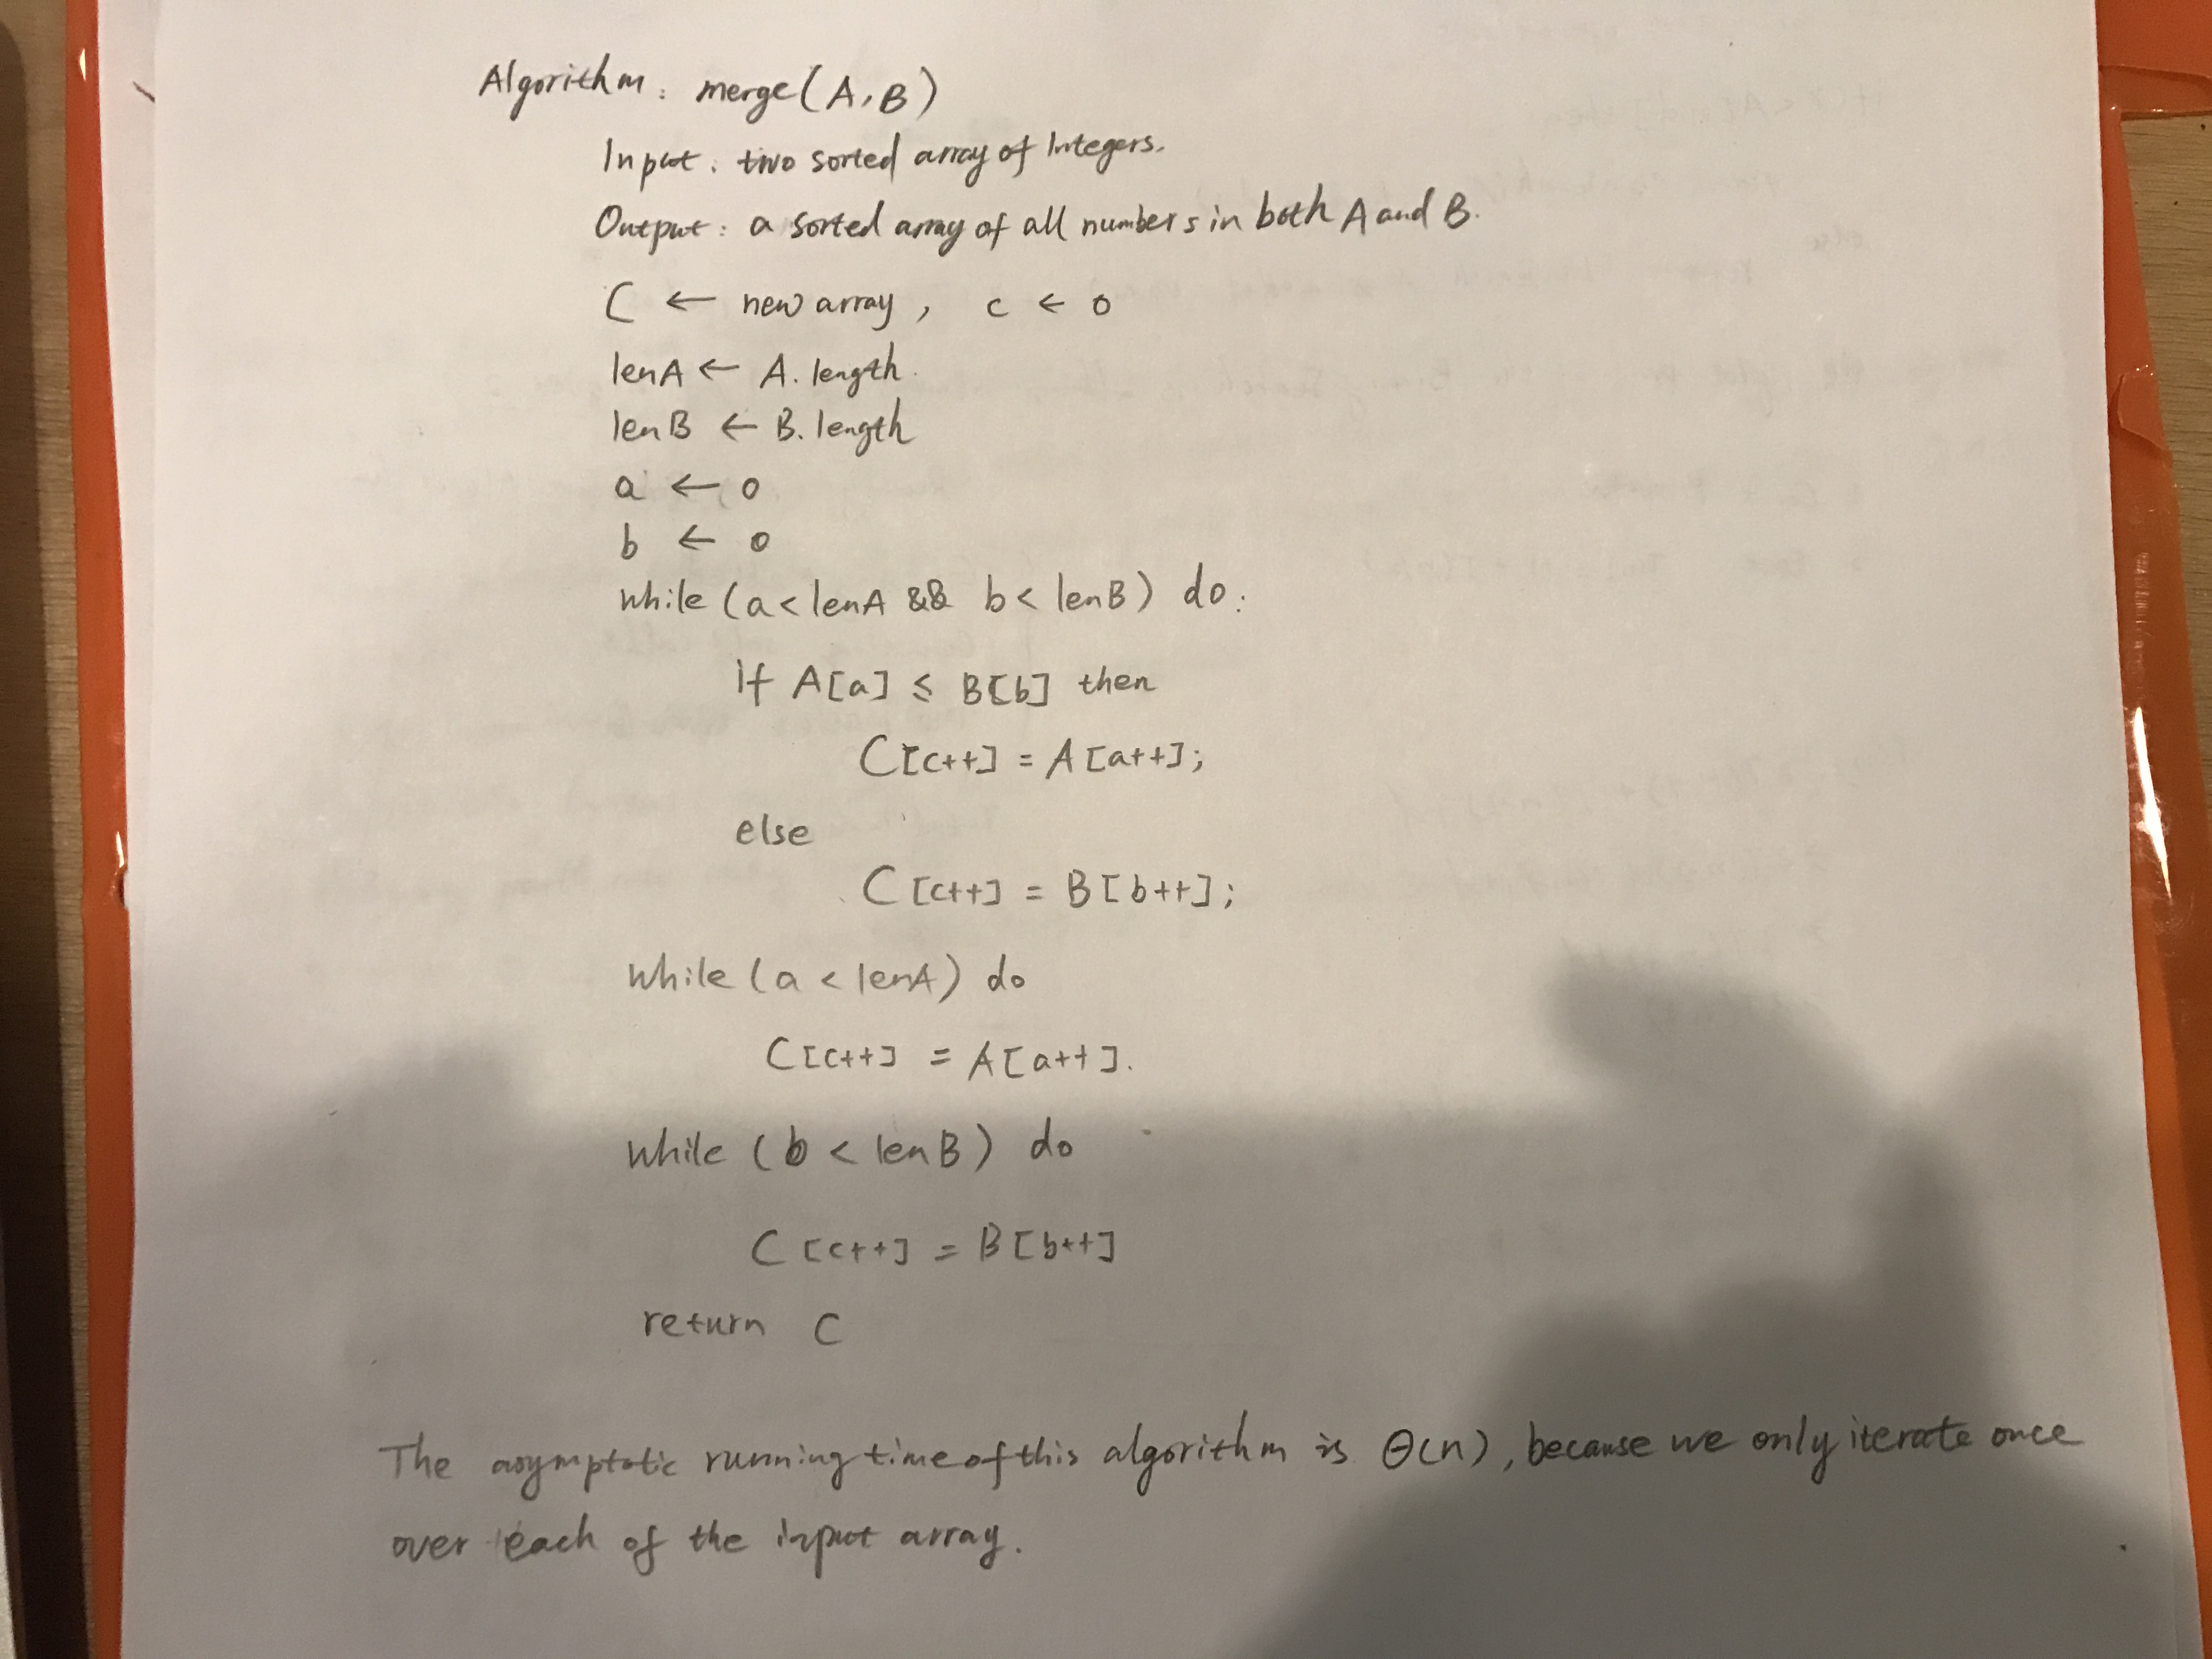 Algorithm: merge(A, B)
Input: two sorted array of Integers.
Output: a sorted array of all numbers in both A and B.
C ← new array, c ← 0
lenA ← A.length.
lenB ← B.length
a ← 0
b ← 0
while (a < lenA && b < lenB) do:
If A[a] ≤ B[b] then
C[c++] = A[a++];
else
C[c++] = B[b++];
while (a < lenA) do
C[c++] = A[a++].
while (b < lenB) do
C[c++] = B[b++]
return C
The asymptotic running time of this algorithm is θ(n), because we only iterate once
over each of the input array.